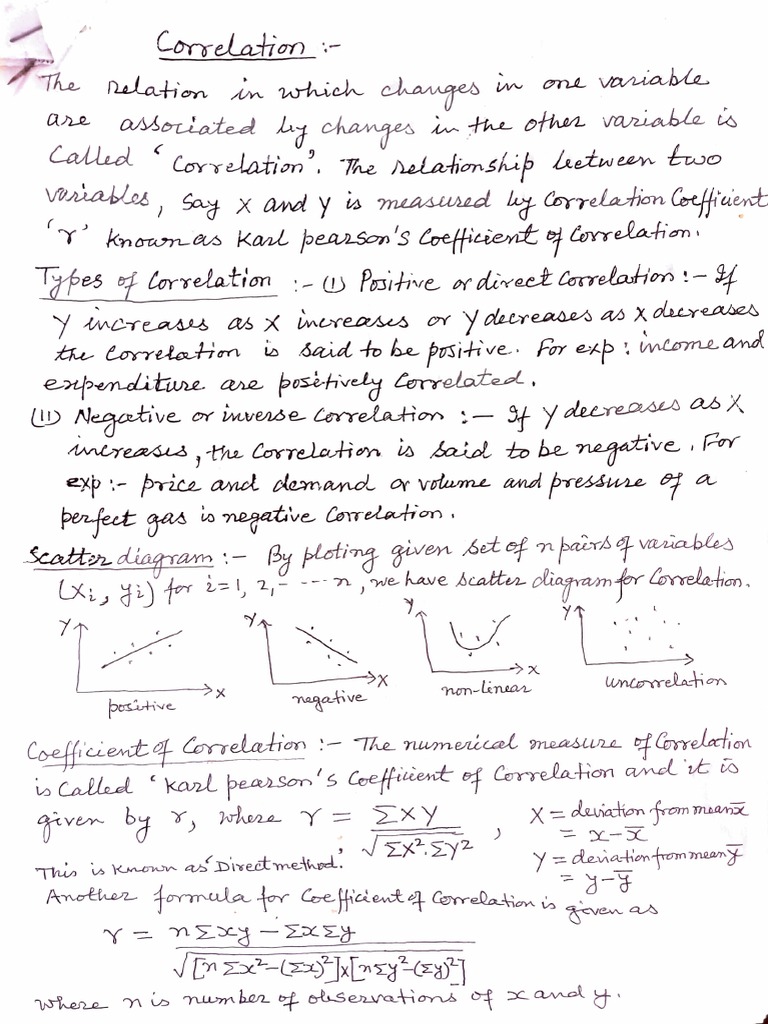 Correlation :-
The relation in which changes in one variable
are associated by changes in the other variable is
Called 'Correlation'. The relationship between two
variables, Say X and Y is measured by Correlation Coefficient
'r' known as Karl pearson's Coefficient of Correlation.
Types of Correlation :- (1) Positive or direct Correlation :- If
Y increases as X increases or Y decreases as X decreases
the Correlation is said to be positive. For exp : income and
expenditure are positively Correlated.
(11) Negative or inverse Correlation :- If Y decreases as X
increases, the Correlation is said to be negative. For
exp :- price and demand or volume and pressure of a
perfect gas is negative Correlation.
Scatter diagram :- By ploting given set of n pairs of variables
(xi, yi) for i=1, 2,- ---- n, we have scatter diagram for Correlation.
Y X positive
Y X negative
Y X non-linear
Y uncorrelation
Coefficient of Correlation :- The numerical measure of Correlation
is Called 'Karl pearson's Coefficient of Correlation and it is
given by r, where r = ΣXY / √ΣX².ΣY² , X = deviation from mean x̄
= x-x̄
This is known as 'Direct method.' Y = deviation from mean ȳ
= y-ȳ
Another formula for Coefficient of Correlation is given as
r = nΣxy - ΣxΣy / √[nΣx²-(Σx)²]x[nΣy²-(Σy)²]
where n is number of observations of x and y.